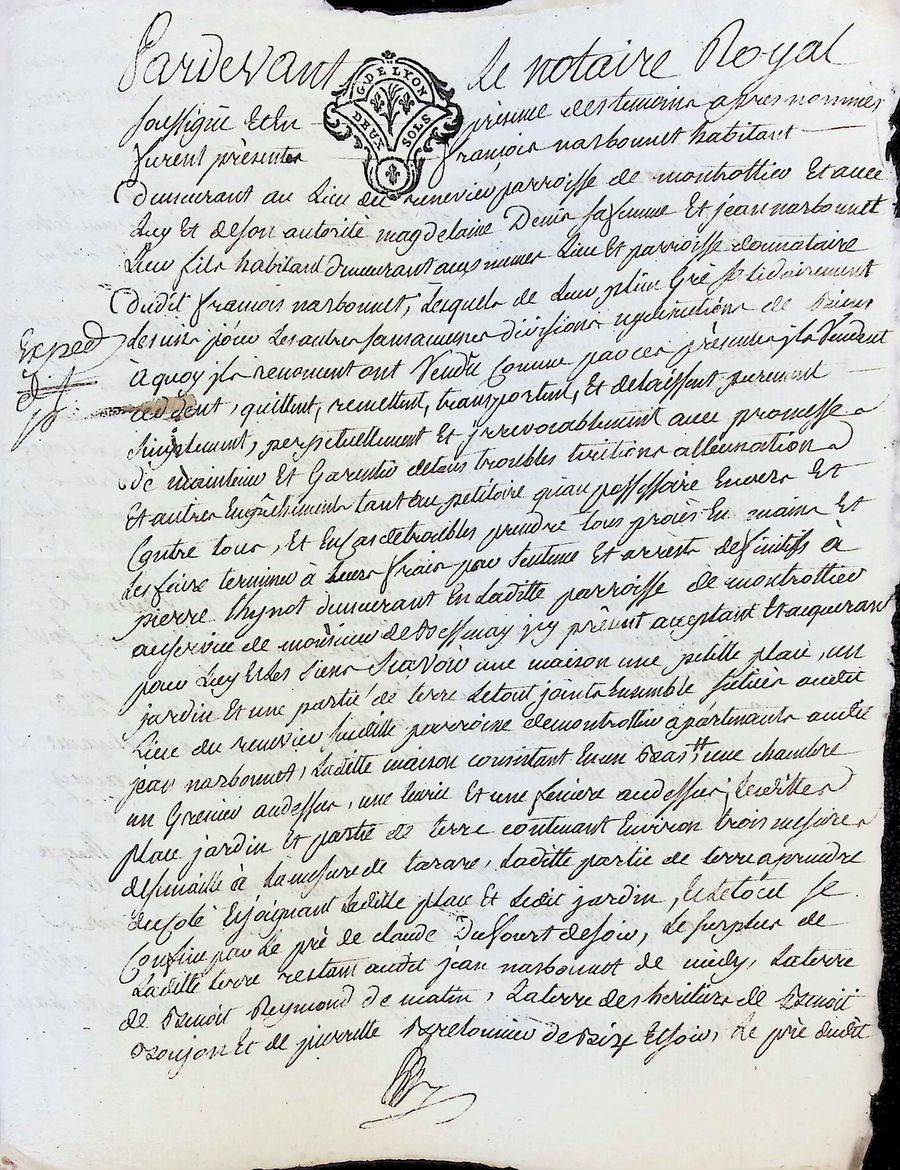 Pardevant le notaire Royal
G. DE LYON
DEUX SOLS
soussigné Et En présence des temoins apres nommés
furent présentes françois narbonnet habitant
demeurant au Lieu du renevier parroisse de montrottier Et avec
Luy Et de son autorité magdelaine Denis sa femme Et jean narbonnet
Leur fils habitant demeurant aux memes Lieu Et parroisse donnataire
dudit françois narbonnet, Lesquels de Leur plein Gré solidairement
Les uns pour Les autres sans aucunes divisions ny discutions de biens
Exped
à quoy ils renoncent ont Vendu Comme par ces présentes ils Vendent
cèddent, quittent, remettent, transportent, Et delaissent purement
simplement, perpetuellement Et jrrevocablement avec promesse
de maintenir Et Garentir de tous troubles Evictions allienations
Et autres Empêchements tant au petitoire qu'au possessoire Envers Et
Contre tous, Et En Cas de troubles prendre tous procès En mains Et
Les faire terminer à Leurs frais par sentence Et arrests definitifs à
pierre thynot demeurant En Laditte parroisse de montrottier
au service de monsieur de jcy présent acceptant Et acquerant
pour Luy Et Les siens Scavoir une maison une petitte place, un
jardin Et une partie de terre Le tout joints Ensemble situés audit
Lieu du renevier susditte parroisse de montrottier apartenants audit
jean narbonnet, Laditte maison consistant En un bas, une chambre
un Grenier audessus, une Ecurie Et une feniere audessus, Lesdittes
place jardin Et partie de terre contenant Environ trois mesures
à La mesure de tarare, Laditte partie de terre a prendre
du Coté Et joignant Laditte place Et Ledit jardin, Et Le tout se
Confine par Le pré de claude Dufourt de soir, Le surplus de
Laditte terre restant audit jean narbonnet de midy, La terre
de Benoit Reymond de matin, La terre des heritiers de Benoit
Et de pierrette de bize Et soir, Le pré dudit